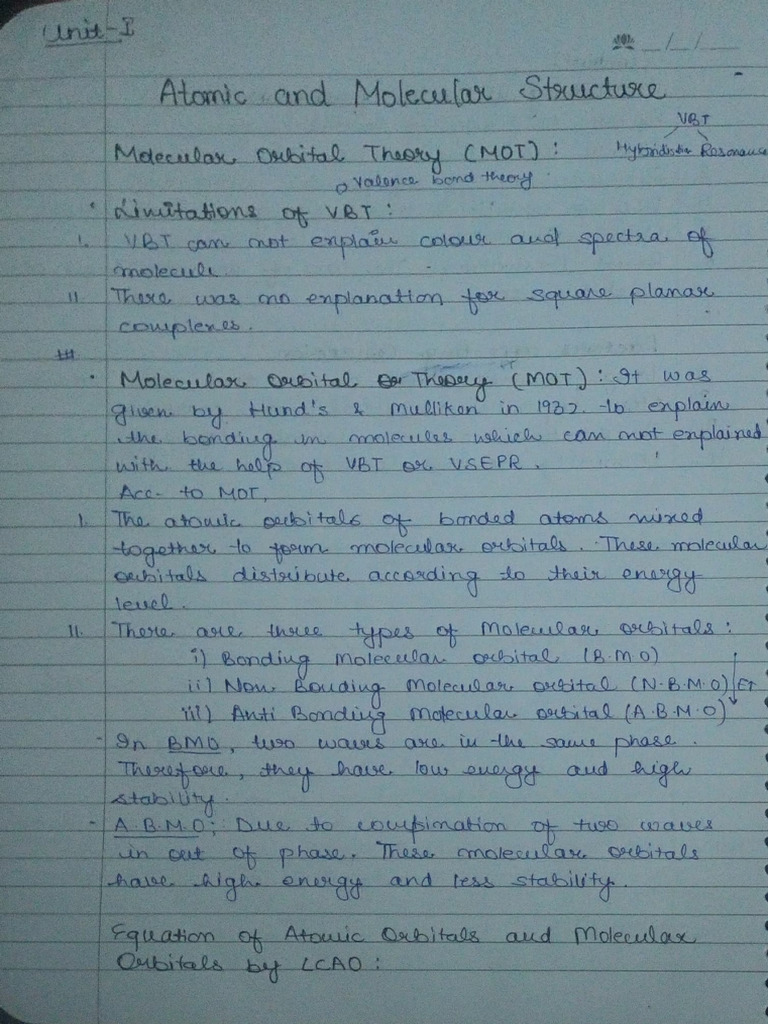 Unit-I
_/_/_
Atomic and Molecular Structure
VBT
Molecular Orbital Theory (MOT) : Hybridisation Resonance
Valence bond theory
Limitations of VBT :
I. VBT can not explain colour and spectra of
molecule.
II There was no explanation for square planar
complexes.
III
Molecular Orbital Theory (MOT) : It was
given by Hund's & Mulliken in 1932 to explain
the bonding in molecules which can not explained
with the help of VBT or VSEPR.
Acc. to MOT,
I. The atomic orbitals of bonded atoms mixed
together to form molecular orbitals. These molecular
orbitals distribute according to their energy
level.
II. There are three types of Molecular orbitals :
i) Bonding Molecular orbital (B.M.O)
ii) Non Bonding Molecular orbital (N.B.M.O) E↑
iii) Anti Bonding Molecular orbital (A.B.M.O)
- In BMO, two waves are in the same phase.
Therefore, they have low energy and high
stability.
- A.B.M.O; Due to combination of two waves
in out of phase. These molecular orbitals
have high energy and less stability.
Equation of Atomic Orbitals and Molecular
Orbitals by LCAO :